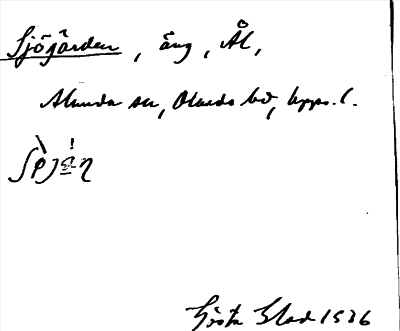 Sjögärden, äng, Ål,
Alunda sn, Olands hd, Upps. l.
Gösta Blad 1936